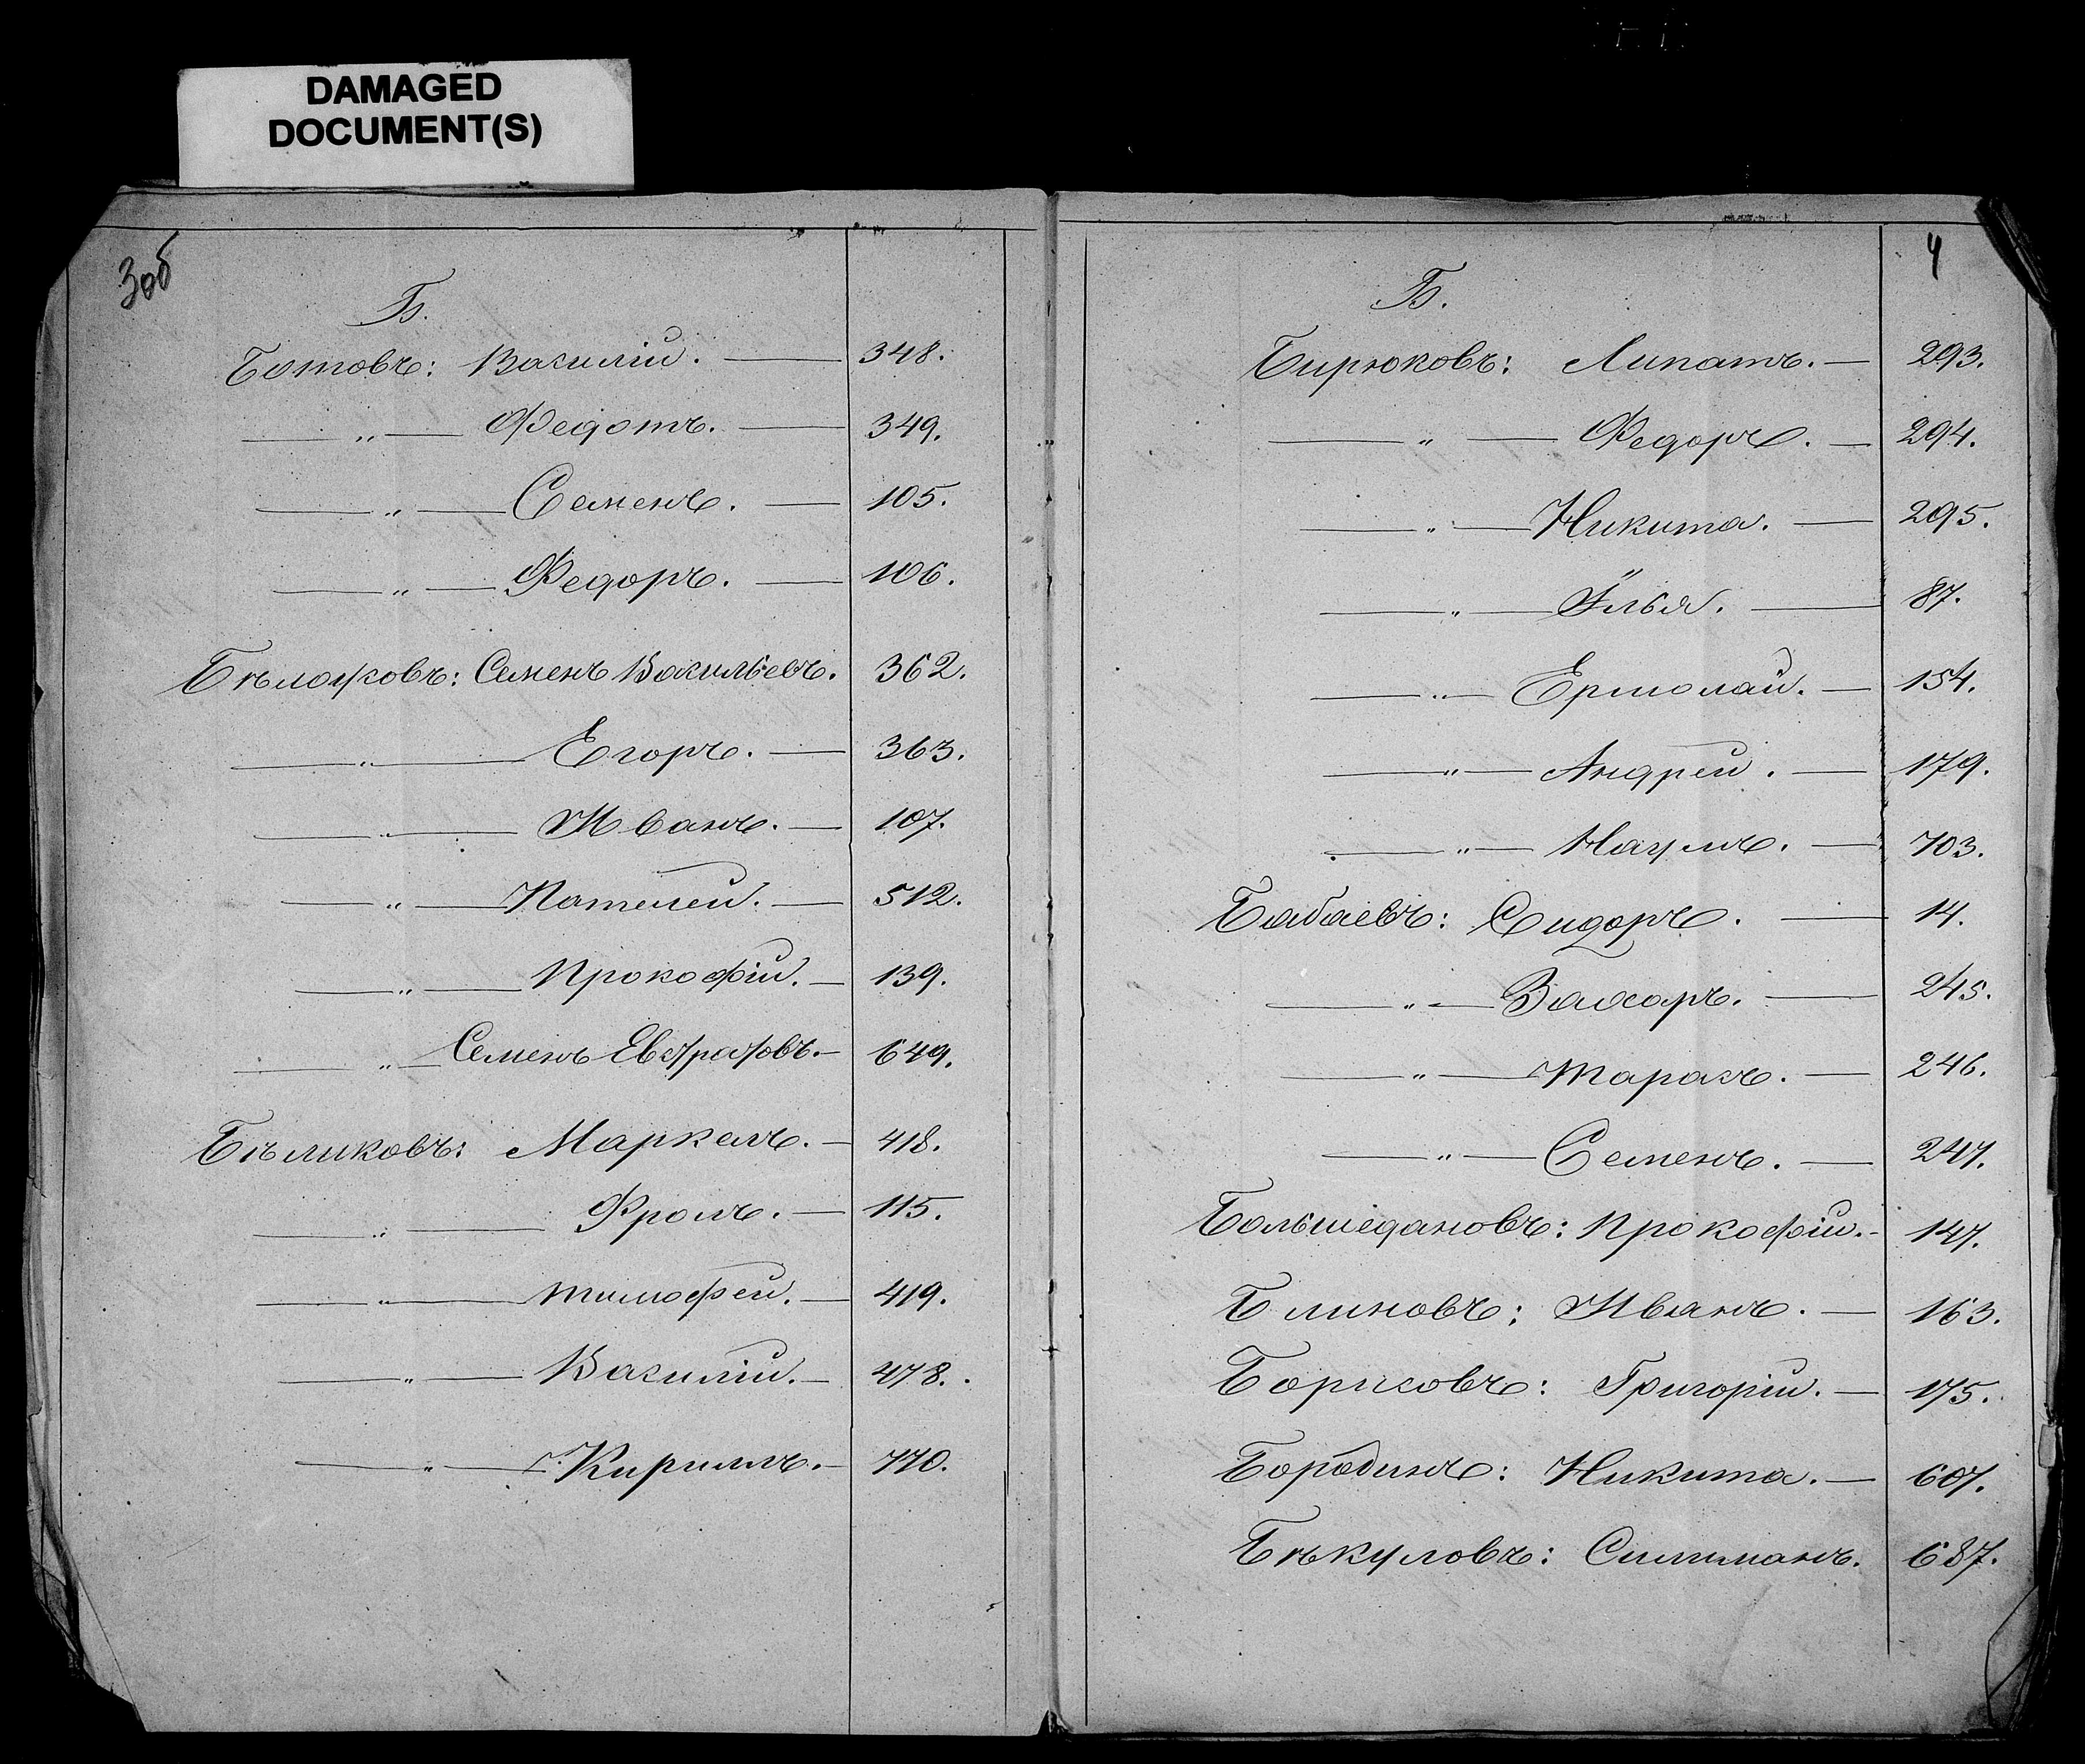 DAMAGED
DOCUMENT(S)
3об
Б.
Ботовъ: Василій. — 348.
— „ — Федотъ. — 349.
— „ — Семенъ. — 105.
— „ — Федоръ. — 106.
Бѣлоусовъ: Семенъ Васильевъ. 362.
— „ — Егоръ. — 363.
— „ — Иванъ. — 107.
— „ — Пателей. — 512.
— „ — Прокофій. — 139.
— „ — Семенъ Евстратовъ. — 649.
Бѣликовъ: Маркелъ. — 418.
— „ — Фролъ. — 115.
— „ — Тимофей. — 419.
— „ — Василій. — 478.
— „ — Кирилъ. — 770.
4
Б.
Бирюковъ: Липатъ. — 293.
— „ — Федоръ. — 294.
— „ — Никита. — 295.
— „ — Илья. — 87.
— „ — Ермолай. — 154.
— „ — Андрей. — 179.
— „ — Наумъ. — 703.
Бабаевъ: Сидоръ. — 14.
— „ — Захаръ. — 245.
— „ — Тарасъ. — 246.
— „ — Семенъ. — 247.
Большедановъ: Прокофій. — 147.
Блиновъ: Иванъ. — 163.
Борисовъ: Григорій. — 175.
Бородинъ: Никита. — 607.
Бѣкуловъ: 687.